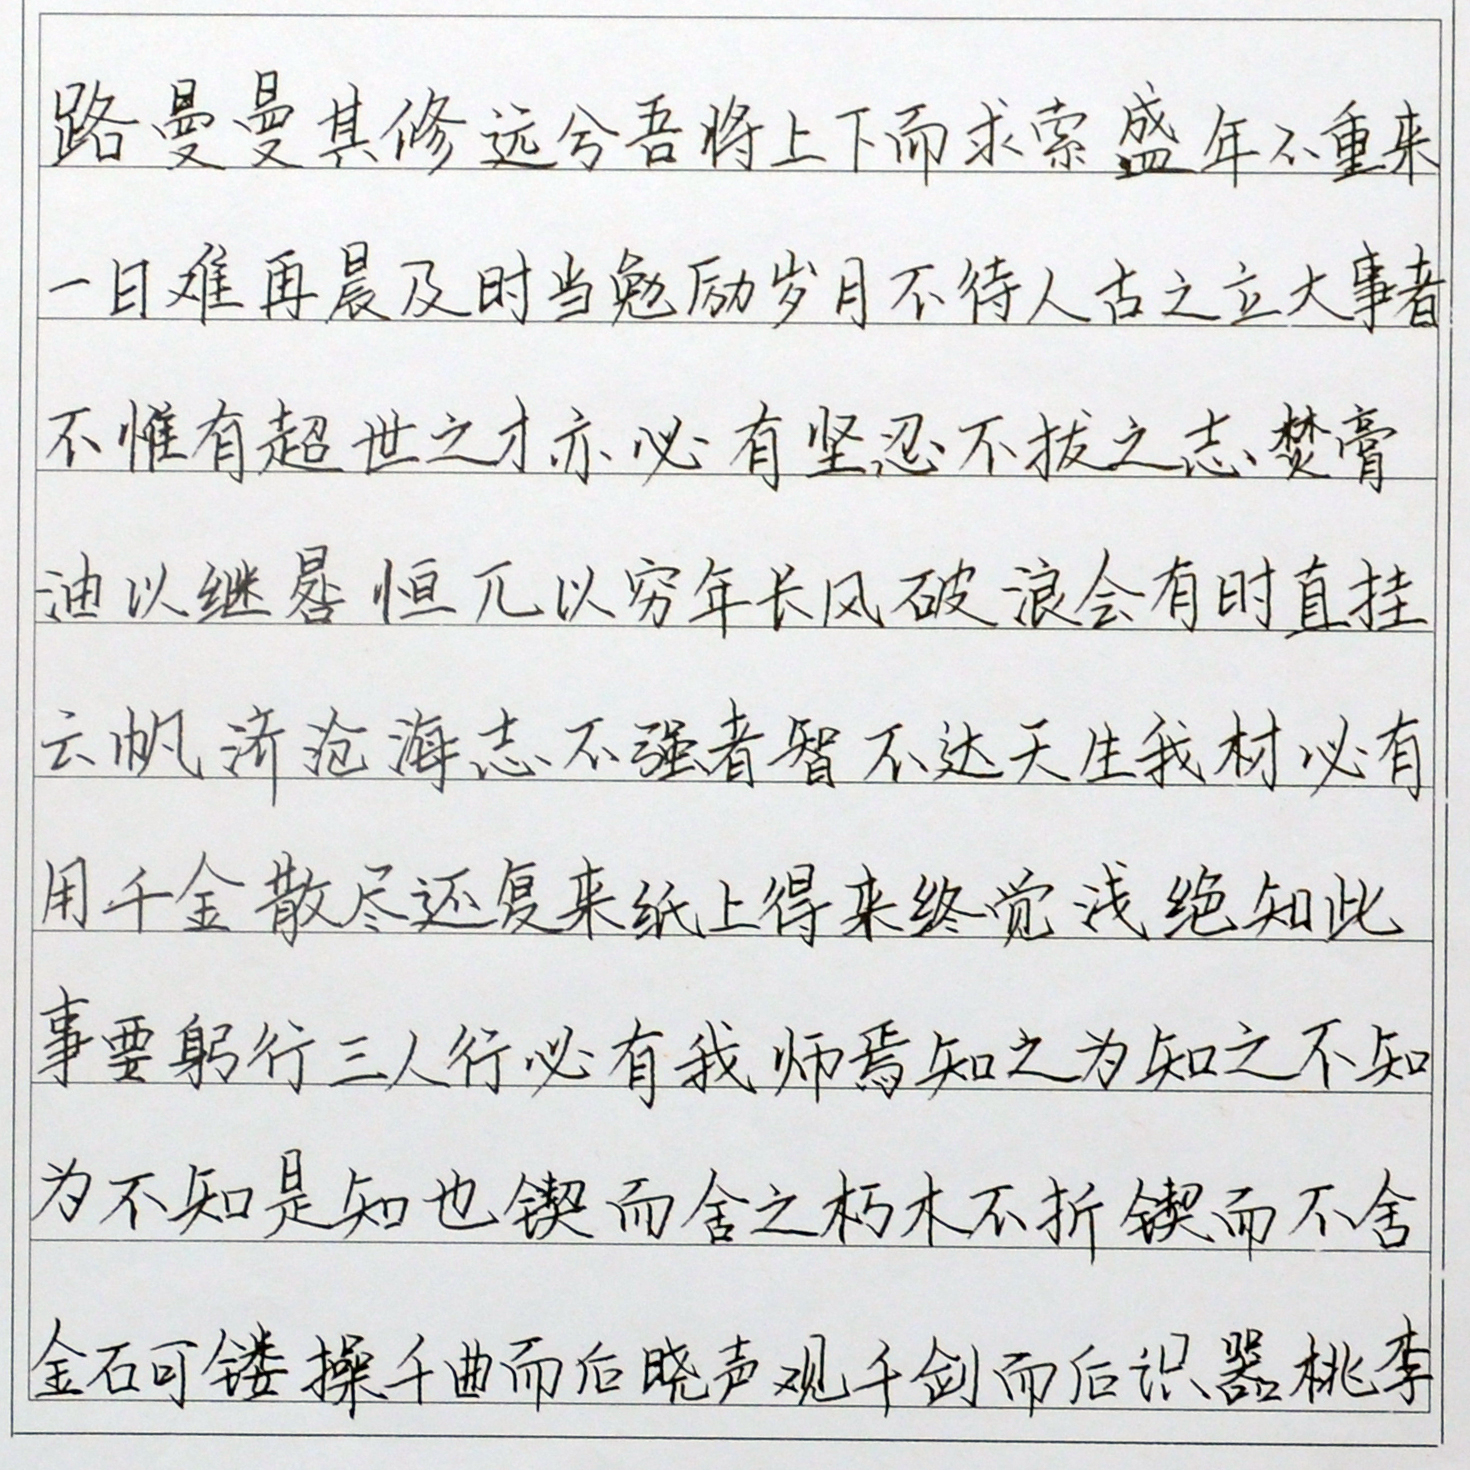 路曼曼其修远兮吾将上下而求索盛年不重来
一日难再晨及时当勉励岁月不待人古之立大事者
不惟有超世之才亦必有坚忍不拔之志焚膏
油以继晷恒兀以穷年长风破浪会有时直挂
云帆济沧海志不强者智不达天生我材必有
用千金散尽还复来纸上得来终觉浅绝知此
事要躬行三人行必有我师焉知之为知之不知
为不知是知也锲而舍之朽木不折锲而不舍
金石可镂操千曲而后晓声观千剑而后识器桃李